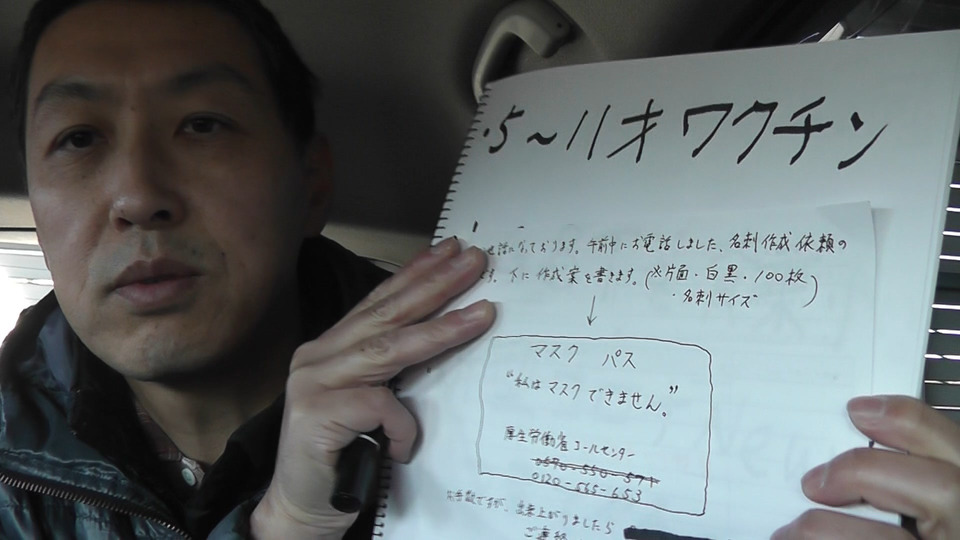 5～11才ワクチン
話になっております。午前中にお電話しました、名刺作成依頼の
ます。下に作成案を書きます。(※片面・白黒・100枚
・名刺サイズ)
↓
マスク パス
“私はマスクできません。”
厚生労働省コールセンター
0570-550-571
0120-565-653
お手数ですが、出来上がりましたら
ご連絡